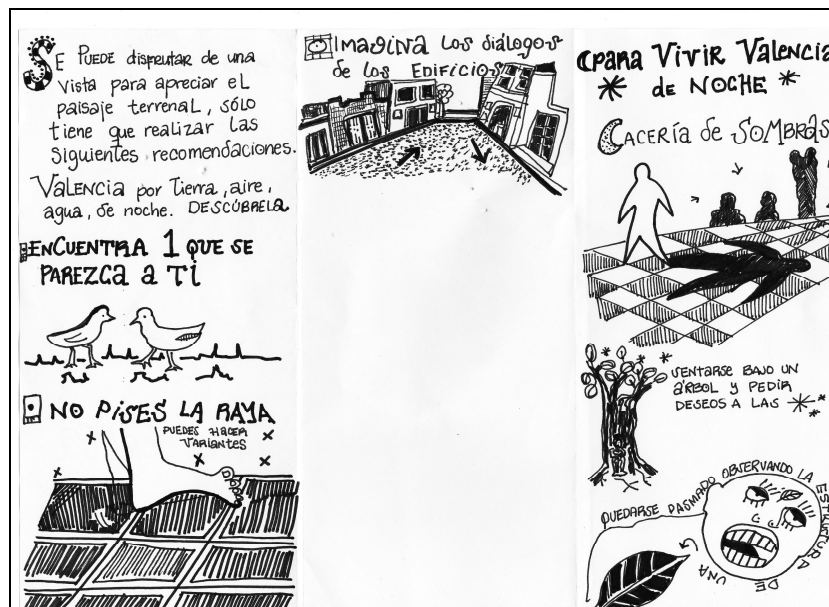 SE PUEDE disfrutar de una
vista para apreciar el
paisaje terrenal, sólo
tiene que realizar las
siguientes recomendaciones.
VALENCIA por tierra, aire,
agua, de noche. DESCÚBRELA
ENCUENTRA 1 QUE SE
PAREZCA a TI
NO PISES LA RAYA
PUEDES HACER
VARIANTES
IMAGINA LOS DIÁLOGOS
de los EDIFICIOS
PARA VIVIR VALENCIA
de NOCHE
CACERÍA de SOMBRAS
SENTARSE BAJO UN
ÁRBOL Y PEDIR
DESEOS A LAS
QUEDARSE PASMADO OBSERVANDO LA ESTRUCTURA DE UNA